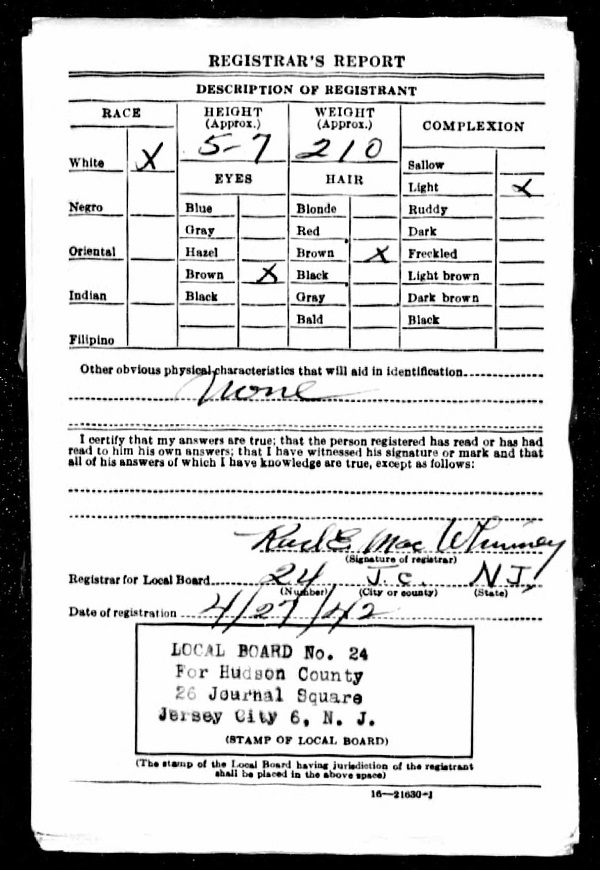 REGISTRAR'S REPORT
DESCRIPTION OF REGISTRANT
RACE
HEIGHT
(Approx.)
WEIGHT
(Approx.)
COMPLEXION
White X
5-7
210
Negro
Oriental
Indian
Filipino
EYES
Blue
Gray
Hazel
Brown X
Black
HAIR
Blonde
Red
Brown X
Black
Gray
Bald
Sallow
Light X
Ruddy
Dark
Freckled
Light brown
Dark brown
Black
Other obvious physical characteristics that will aid in identification
None
I certify that my answers are true; that the person registered has read or has had
read to him his own answers; that I have witnessed his signature or mark and that
all of his answers of which I have knowledge are true, except as follows:
E. Mac Whinney
(Signature of registrar)
Registrar for Local Board 24 J.C. N.J.
(Number) (City or county) (State)
Date of registration 4/27/42
LOCAL BOARD No. 24
For Hudson County
26 Journal Square
Jersey City 6, N. J.
(STAMP OF LOCAL BOARD)
(The stamp of the Local Board having jurisdiction of the registrant
shall be placed in the above space)
16—21630-1